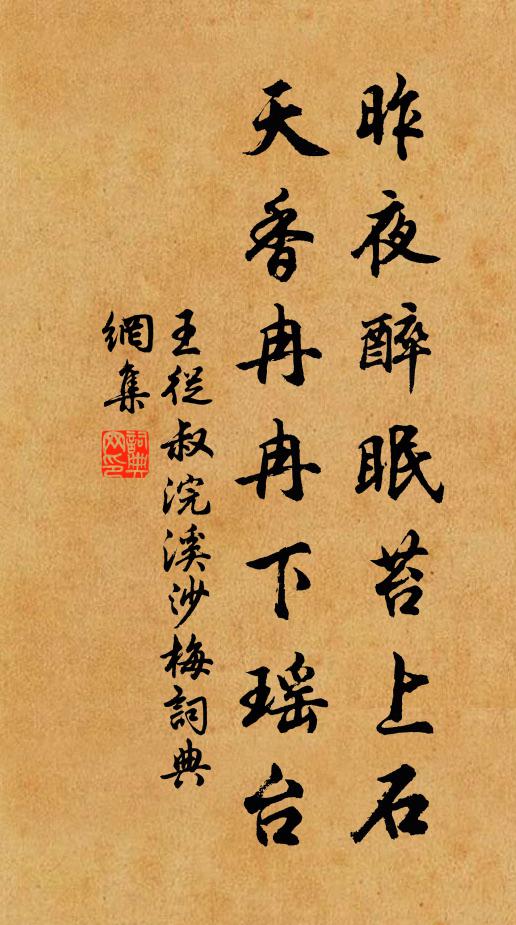 昨夜醉眠苔上石
天香冉冉下瑶台
王從叔浣溪沙梅詞典
網集
詞典
网印